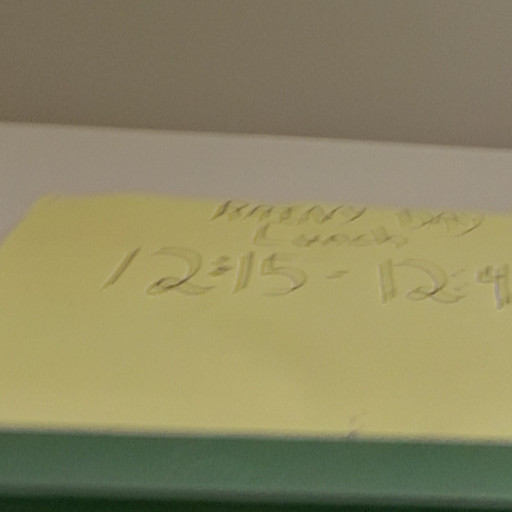 Rainy Day
Lunch
12:15 - 12:4